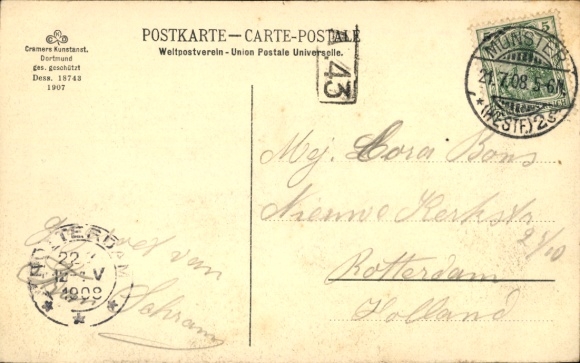 POSTKARTE — CARTE-POSTALE
Weltpostverein - Union Postale Universelle.
Cramers Kunstanst.
Dortmund
ges. geschützt
Dess. 18743
1907
43
5 5
MÜNSTER
21.7.08. 5-6N.
* (WESTF.) 2
Mej. Cora Bons
Nieuwe Kerkstr
Rotterdam
Holland
Groet van
Schram
ROTTERDAM
22
12 V
1908